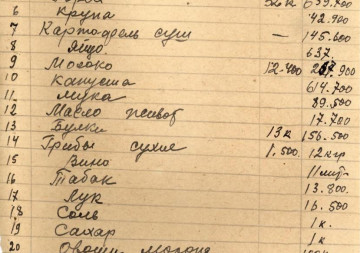 6 Крупа 42.900
7 Картофель суш — 145.600
8 Яйцо 637.
9 Молоко 12.400
10 Капуста 614.700
11 Мука 89.500
12 Масло живот 17.700
13 Булки 13к 156.500
14 Грибы сухие 1.500. 12кгр
15 Вино 11лит
16 Табак 13.800.
17 Лук 16.500
18 Соль 1к.
19 Сахар 1к
20 Овощи